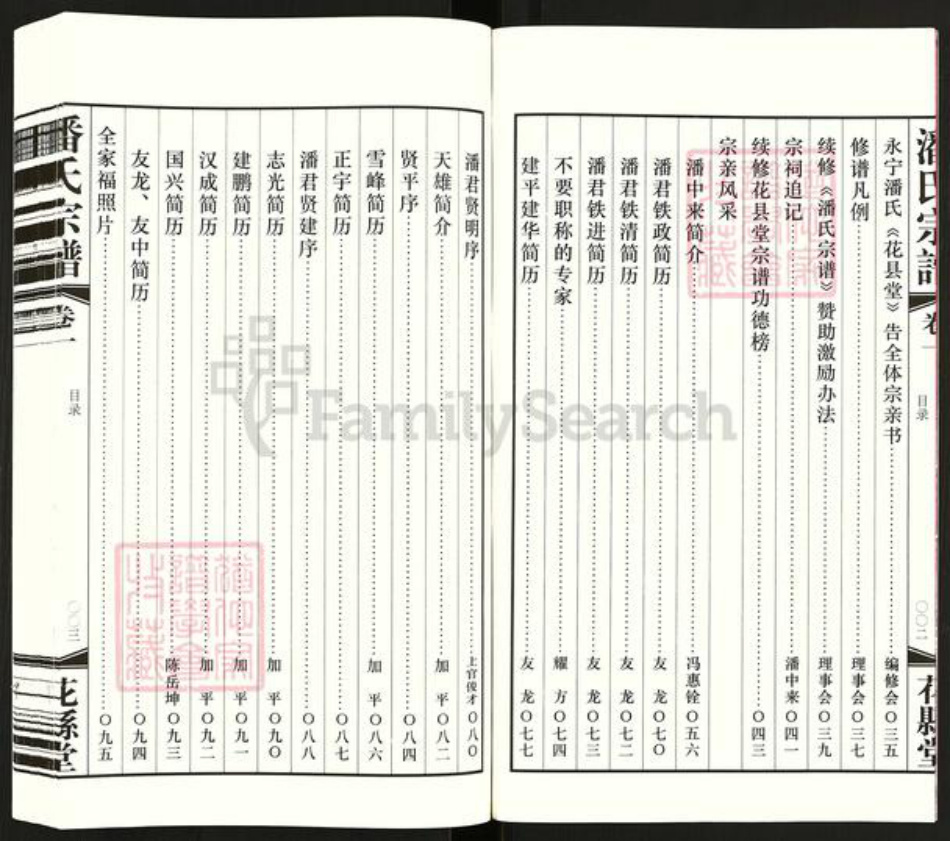 潘氏宗譜 卷一 目录 〇〇二 花縣堂
永宁潘氏《花县堂》告全体宗亲书 编修会 〇三五
修谱凡例 理事会 〇三七
续修《潘氏宗谱》赞助激励办法 理事会 〇三九
宗祠追记 潘中来 〇四一
续修花县堂宗谱功德榜 〇四三
宗亲风采
潘中来简介 冯惠铨 〇五六
潘君铁政简历 友龙 〇七〇
潘君铁清简历 友龙 〇七二
潘君铁进简历 友龙 〇七三
不要职称的专家 耀方 〇七四
建平建华简历 友龙 〇七七
潘君贤明序 上官俊才 〇八〇
天雄简介 加平 〇八二
贤平序 〇八四
雪峰简历 加平 〇八六
正宇简历 〇八七
潘君贤建序 〇八八
志光简历 加平 〇九〇
建鹏简历 加平 〇九一
汉成简历 加平 〇九二
国兴简历 陈岳坤 〇九三
友龙、友中简历 〇九四
全家福照片 〇九五
潘氏宗譜 卷一 目录 〇〇三 花縣堂
FamilySearch